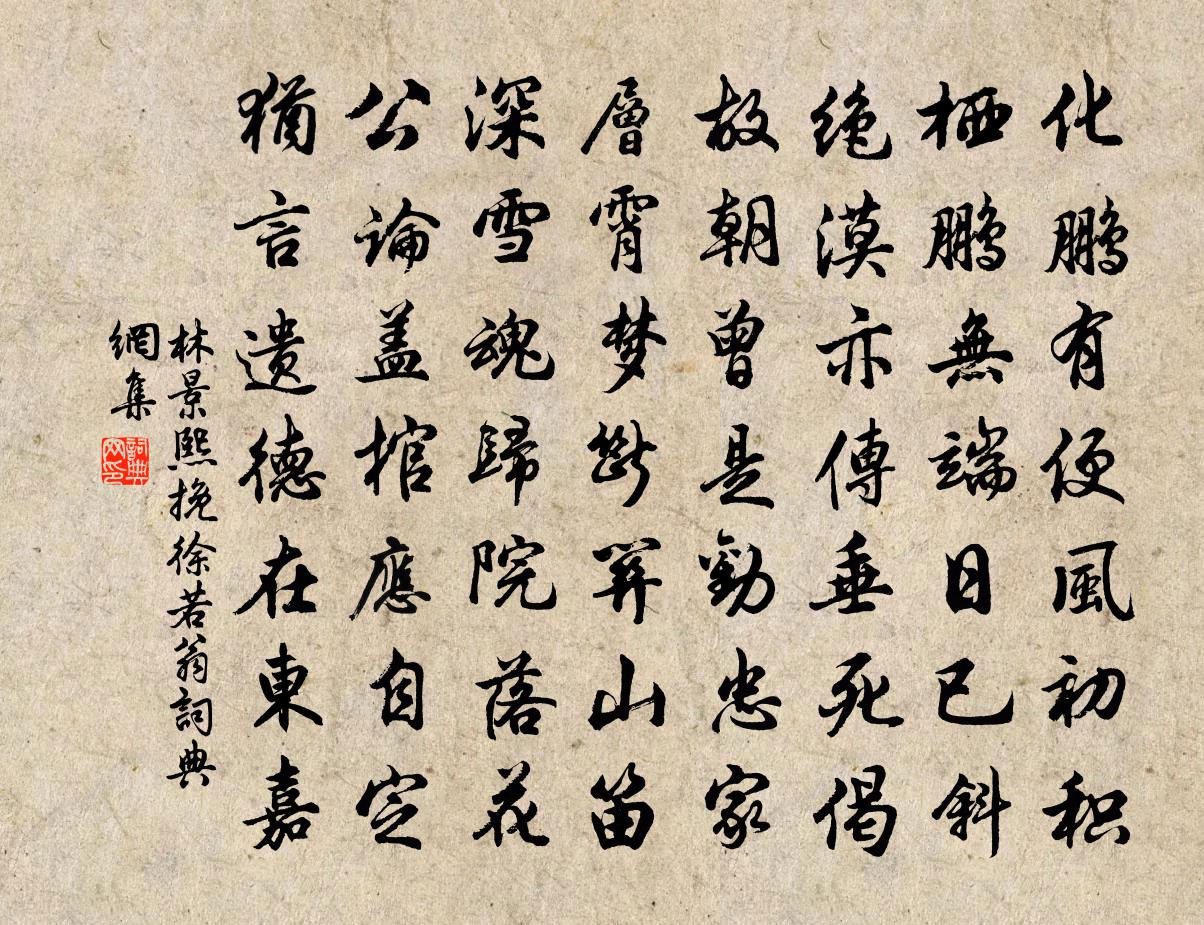 化鵬有便風初积
栖鵬無端日已斜
绝漠亦傳垂死偈
故朝曾是勸忠家
層霄梦斷關山笛
深雪魂歸院落花
公論盖棺應自定
猶言遗德在東嘉
林景熙挽徐若翁詞典
網集
詞典
网印